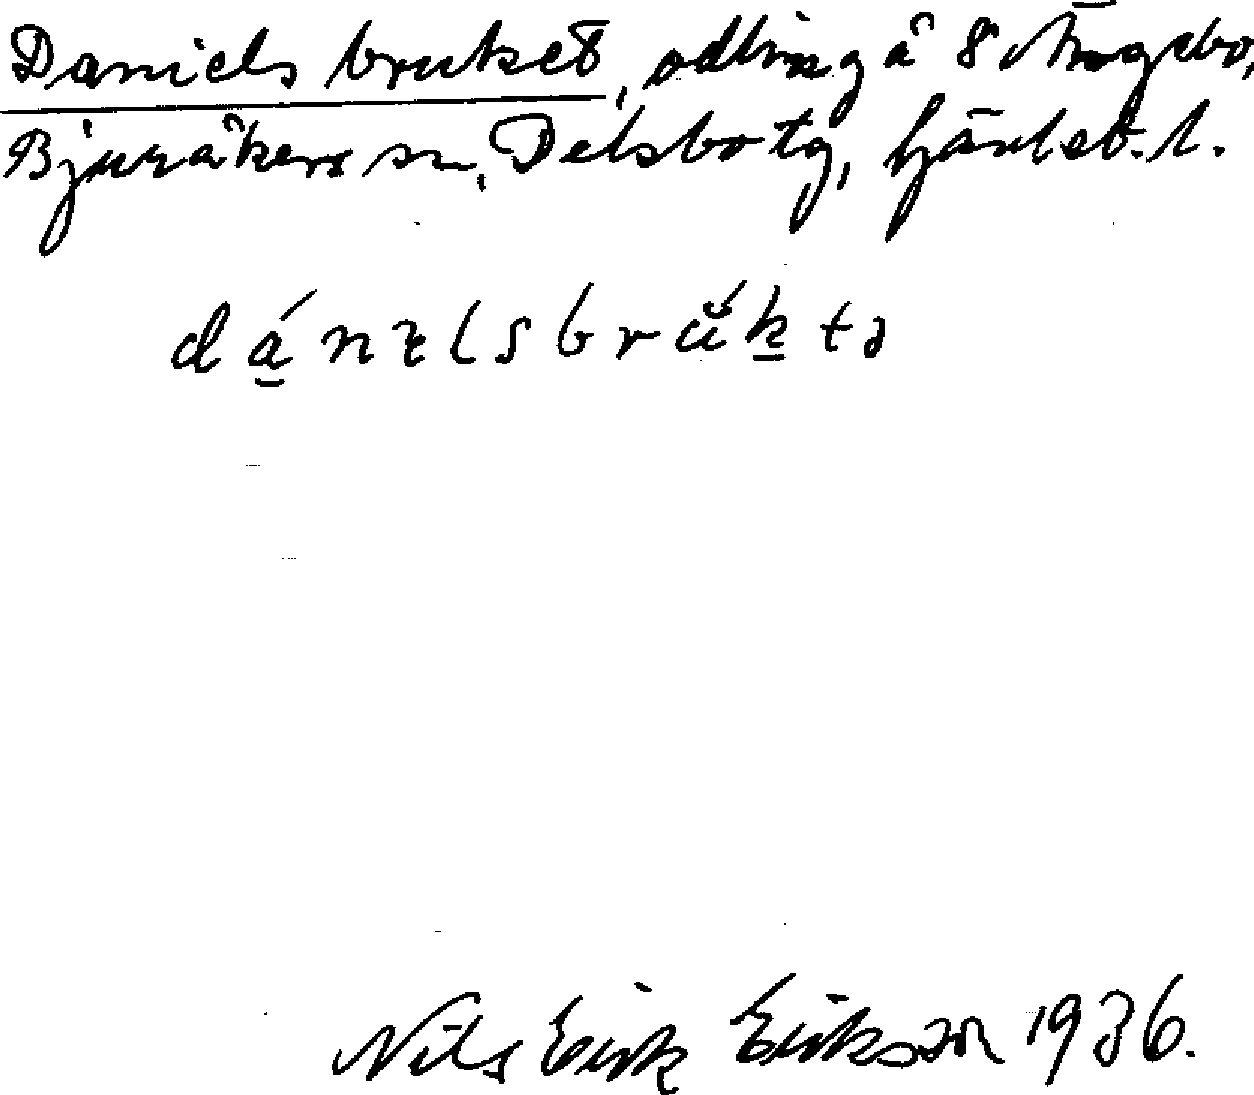 Daniels bruket, odling å 8 Ängebo,
Bjuråkers sn, Delsbo tg, Gävleb. l.
dánɩlsbrŭ́ktə
Nils Erik Erikson 1936.